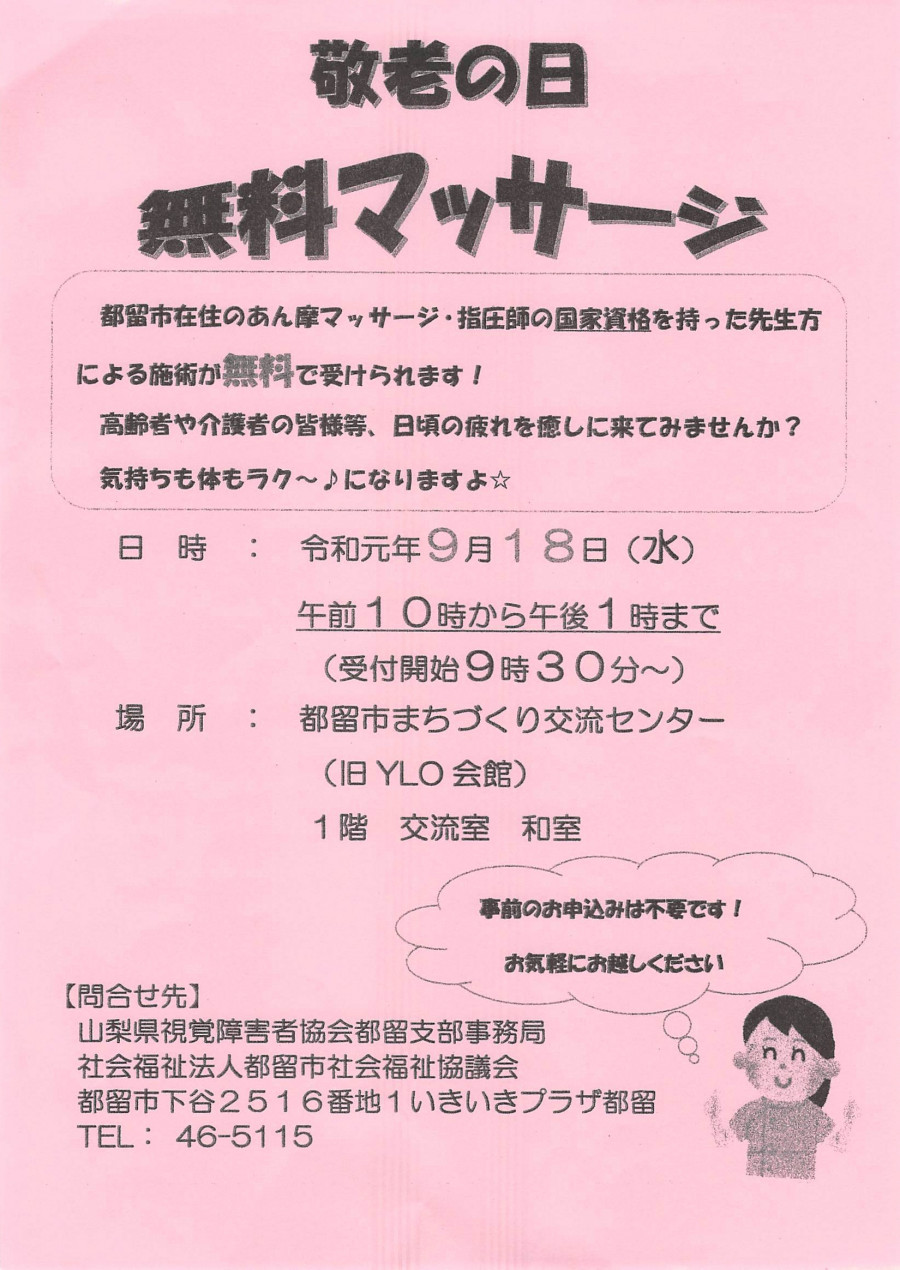 敬老の日
無料マッサージ
都留市在住のあん摩マッサージ・指圧師の国家資格を持った先生方
による施術が無料で受けられます！
高齢者や介護者の皆様等、日頃の疲れを癒しに来てみませんか？
気持ちも体もラク～♪になりますよ☆
日　時　：　令和元年９月１８日（水）
午前１０時から午後１時まで
（受付開始９時３０分～）
場　所　：　都留市まちづくり交流センター
（旧 YLO 会館）
１階　交流室　和室
事前のお申込みは不要です！
お気軽にお越しください
【問合せ先】
山梨県視覚障害者協会都留支部事務局
社会福祉法人都留市社会福祉協議会
都留市下谷２５１６番地１いきいきプラザ都留
TEL： 46-5115